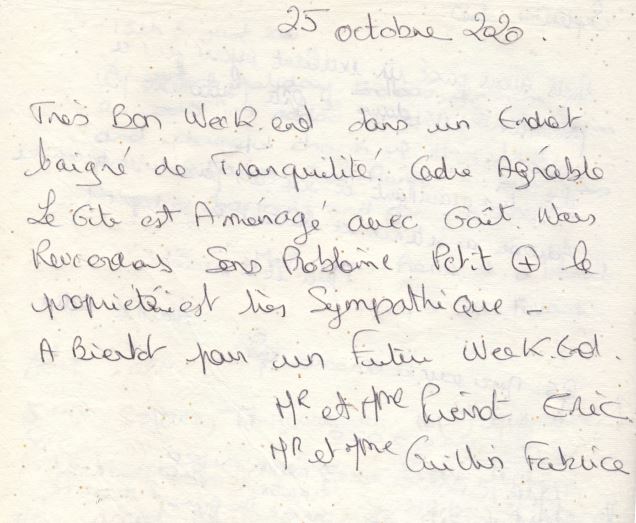 25 octobre 2020.
Très Bon Week end dans un Endroit
baigné de Tranquilité Cadre Agréable
Le Gite est Aménagé avec Goût. Nous
Reviendrons Sans Problème Petit ⊕ le
propriétaire est très Sympathique -
A Bientôt pour un Futur Week.End.
Mr et Mme Eric
Mr et Mme Fabrice